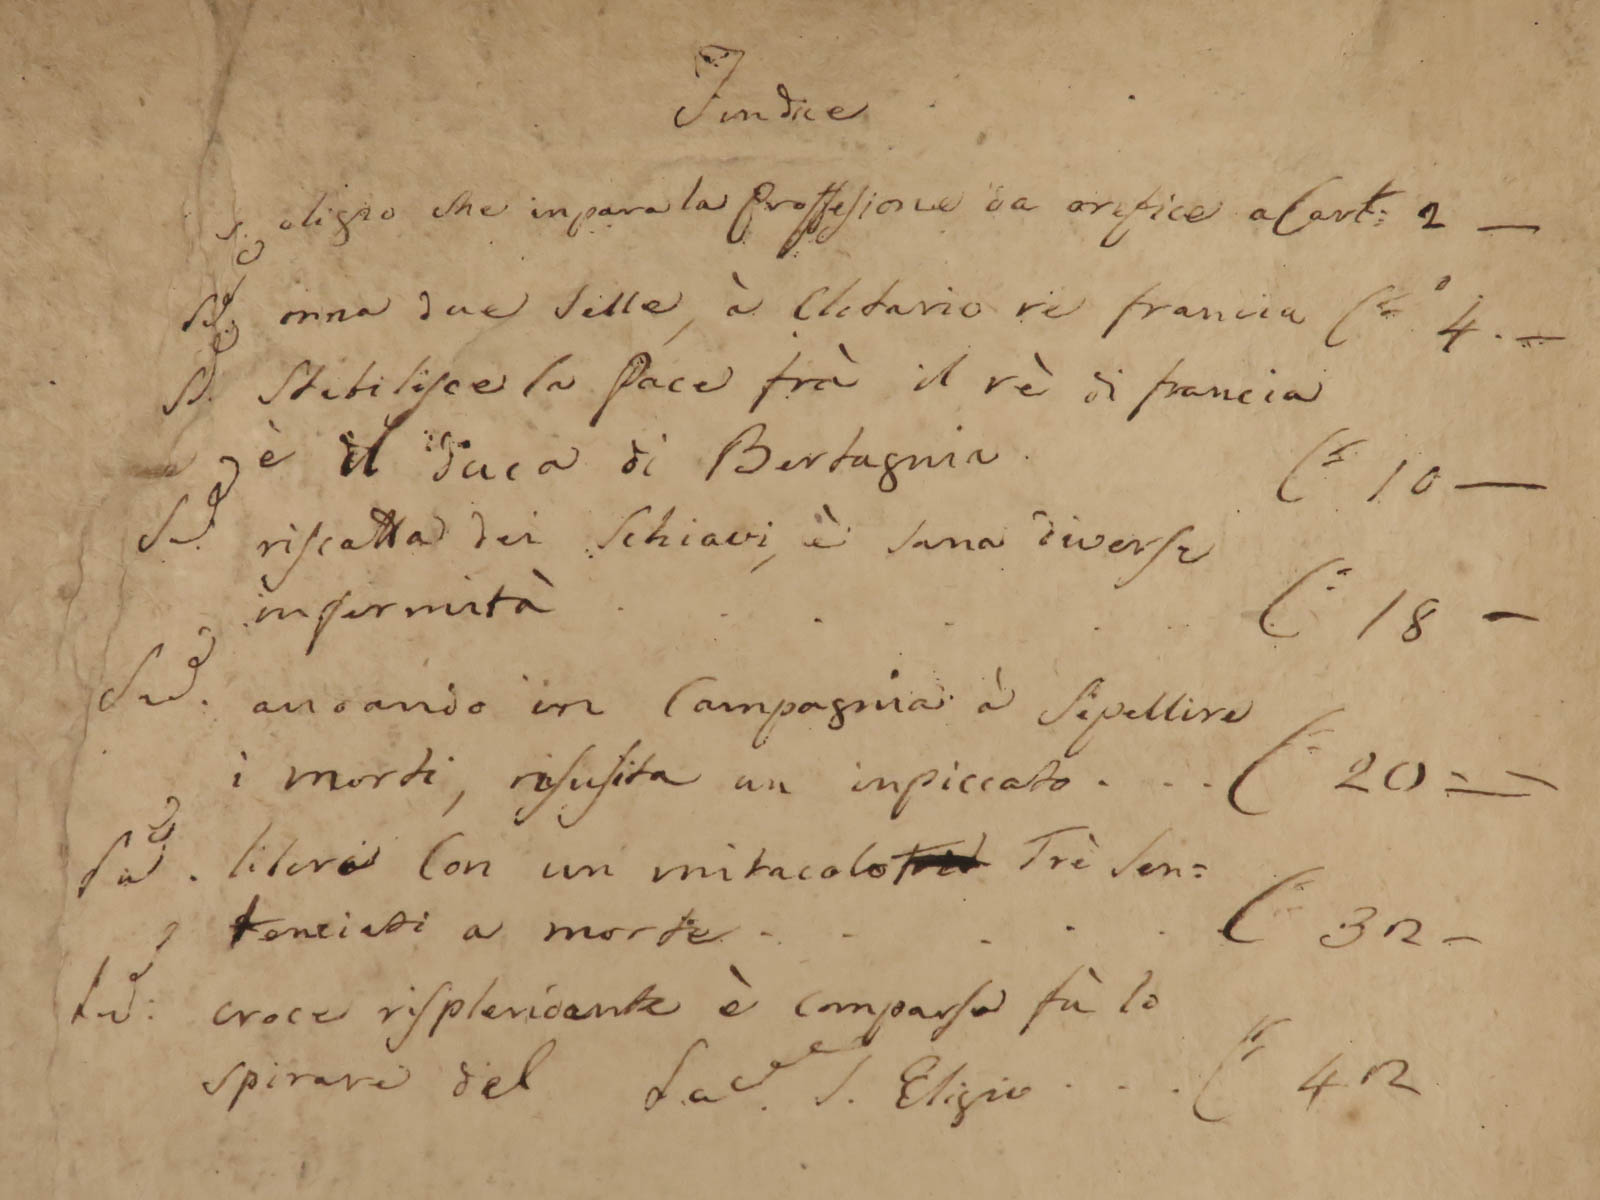 Jindice
S. eligio che inpara la professione da orefice a Cart: 2 —
Sud. onna due Selle, à Clotario re francia C.e 4. —
Sd. Stebilisce la pace frà il rè di francia
è il duca di Bertagnia. C.e 10 —
Sud. riscatta dei Schiavi, è sana diverse
infermità . . . . C: 18 —
Sud. andando in Campagnia à Sepellire
i morti, risusita un inpiccato . . . C: 20 =
Sud. liberà Con un miracolo Trè Sen=
tenciati a morte . . . . . C: 32 —
Sud: croce risplendante è comparsa fù lo
spirare del Sud. S. Eligio . . . C.e 42